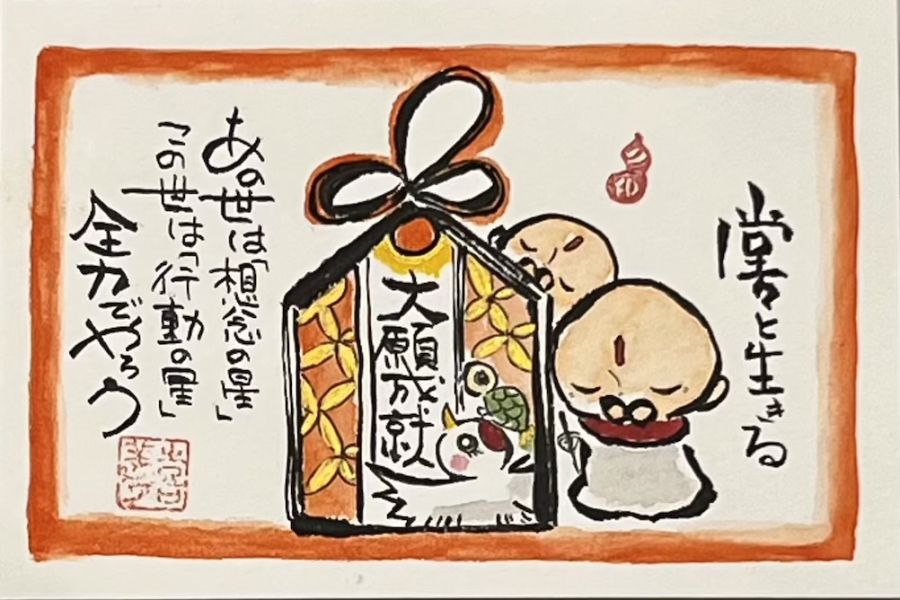 堂々と生きる
大願成就
あの世は「想念の星」
この世は「行動の星」
全力でやろう